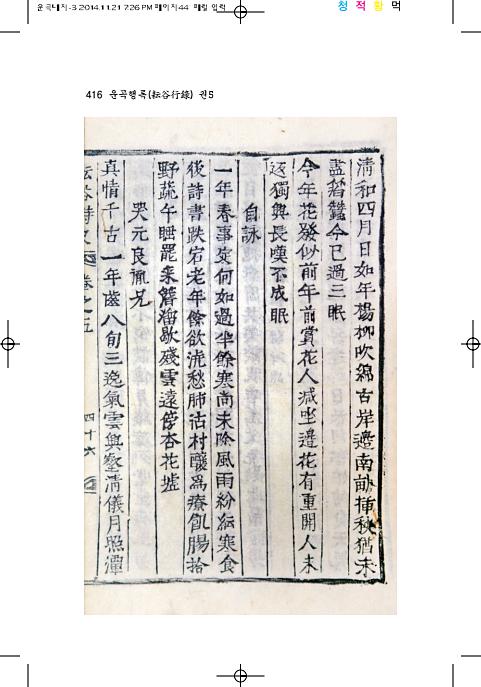 2014.11.21 7:26 PM 페이지44
청 적 황 먹
416 운곡행록(耘谷行錄) 권5
淸和四月日如年楊柳吹綿古岸邊南畝揷秧猶未
盡 蠶今已過三眠
今年花發似前年前賞花人减坐邊花有重開人未
返獨興長嘆不成眠
自詠
一年春事定何如過半餘寒尚未除風雨紛紜寒食
後詩書跌宕老年餘欲洗愁肺沽村釀爲療飢腸拾
野蔬午睡罷来簷溜歇殘雲遠傍杏花墟
哭元良 兄
真情千古一年齒八旬三逸氣雲興壑淸儀月照潭
耘谷詩史 卷之五 四十六